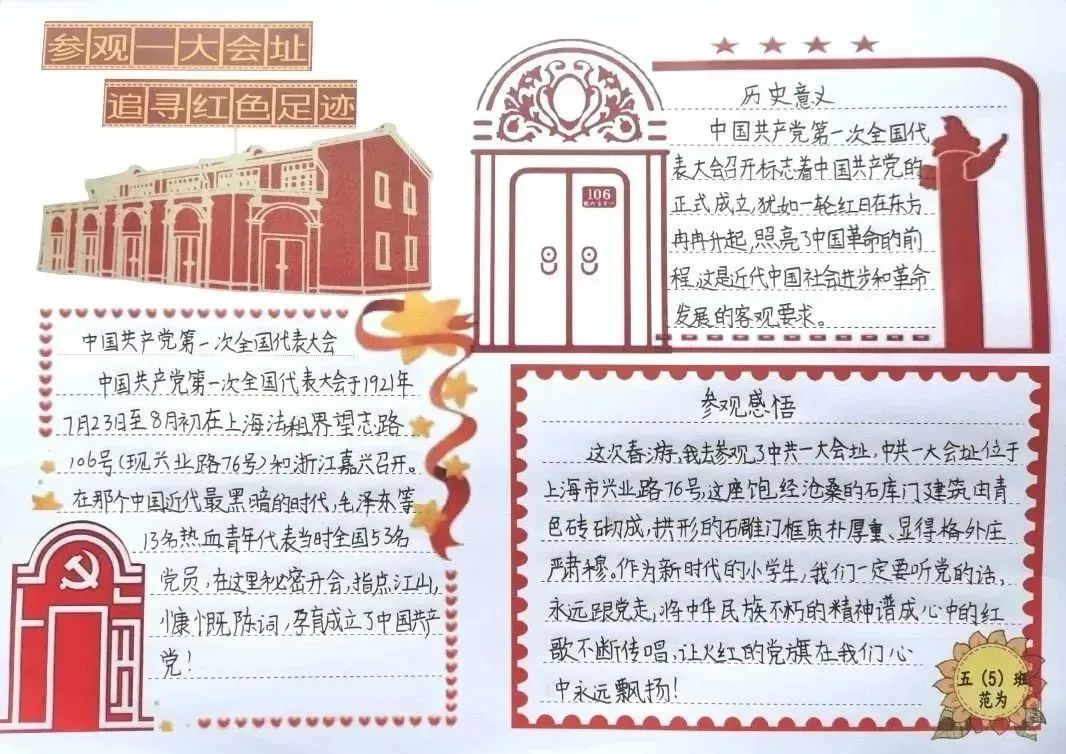 参观一大会址
追寻红色足迹
中国共产党第一次全国代表大会
中国共产党第一次全国代表大会于1921年
7月23日至8月初在上海法租界望志路
106号(现兴业路76号)和浙江嘉兴召开。
在那个中国近代最黑暗的时代,毛泽东等
13名热血青年代表当时全国53名
党员,在这里秘密开会,指点江山,
慷慨陈词,孕育成立了中国共产
党!
106
历史意义
中国共产党第一次全国代
表大会召开标志着中国共产党的
正式成立,犹如一轮红日在东方
冉冉升起,照亮了中国革命的前
程,这是近代中国社会进步和革命
发展的客观要求。
参观感悟
这次春游,我去参观了中共一大会址,中共一大会址位于
上海市兴业路76号,这座饱经沧桑的石库门建筑由青
色砖砌成,拱形的石雕门框质朴厚重、显得格外庄
严肃穆。作为新时代的小学生,我们一定要听党的话,
永远跟党走,将中华民族不朽的精神谱成心中的红
歌不断传唱,让火红的党旗在我们心
中永远飘扬!
五(5)班
范为